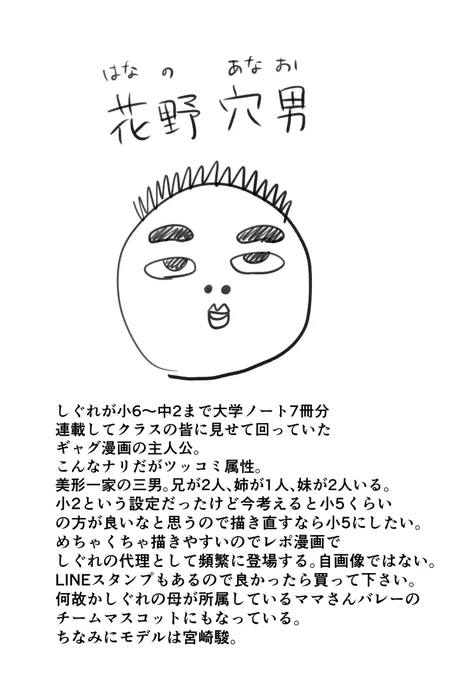 はな の あな お
花野 穴男
しぐれが小6〜中2まで大学ノート7冊分
連載してクラスの皆に見せて回っていた
ギャグ漫画の主人公。
こんなナリだがツッコミ属性。
美形一家の三男。兄が2人、姉が1人、妹が2人いる。
小2という設定だったけど今考えると小5くらい
の方が良いなと思うので描き直すなら小5にしたい。
めちゃくちゃ描きやすいのでレポ漫画で
しぐれの代理として頻繁に登場する。自画像ではない。
LINEスタンプもあるので良かったら買って下さい。
何故かしぐれの母が所属しているママさんバレーの
チームマスコットにもなっている。
ちなみにモデルは宮崎駿。